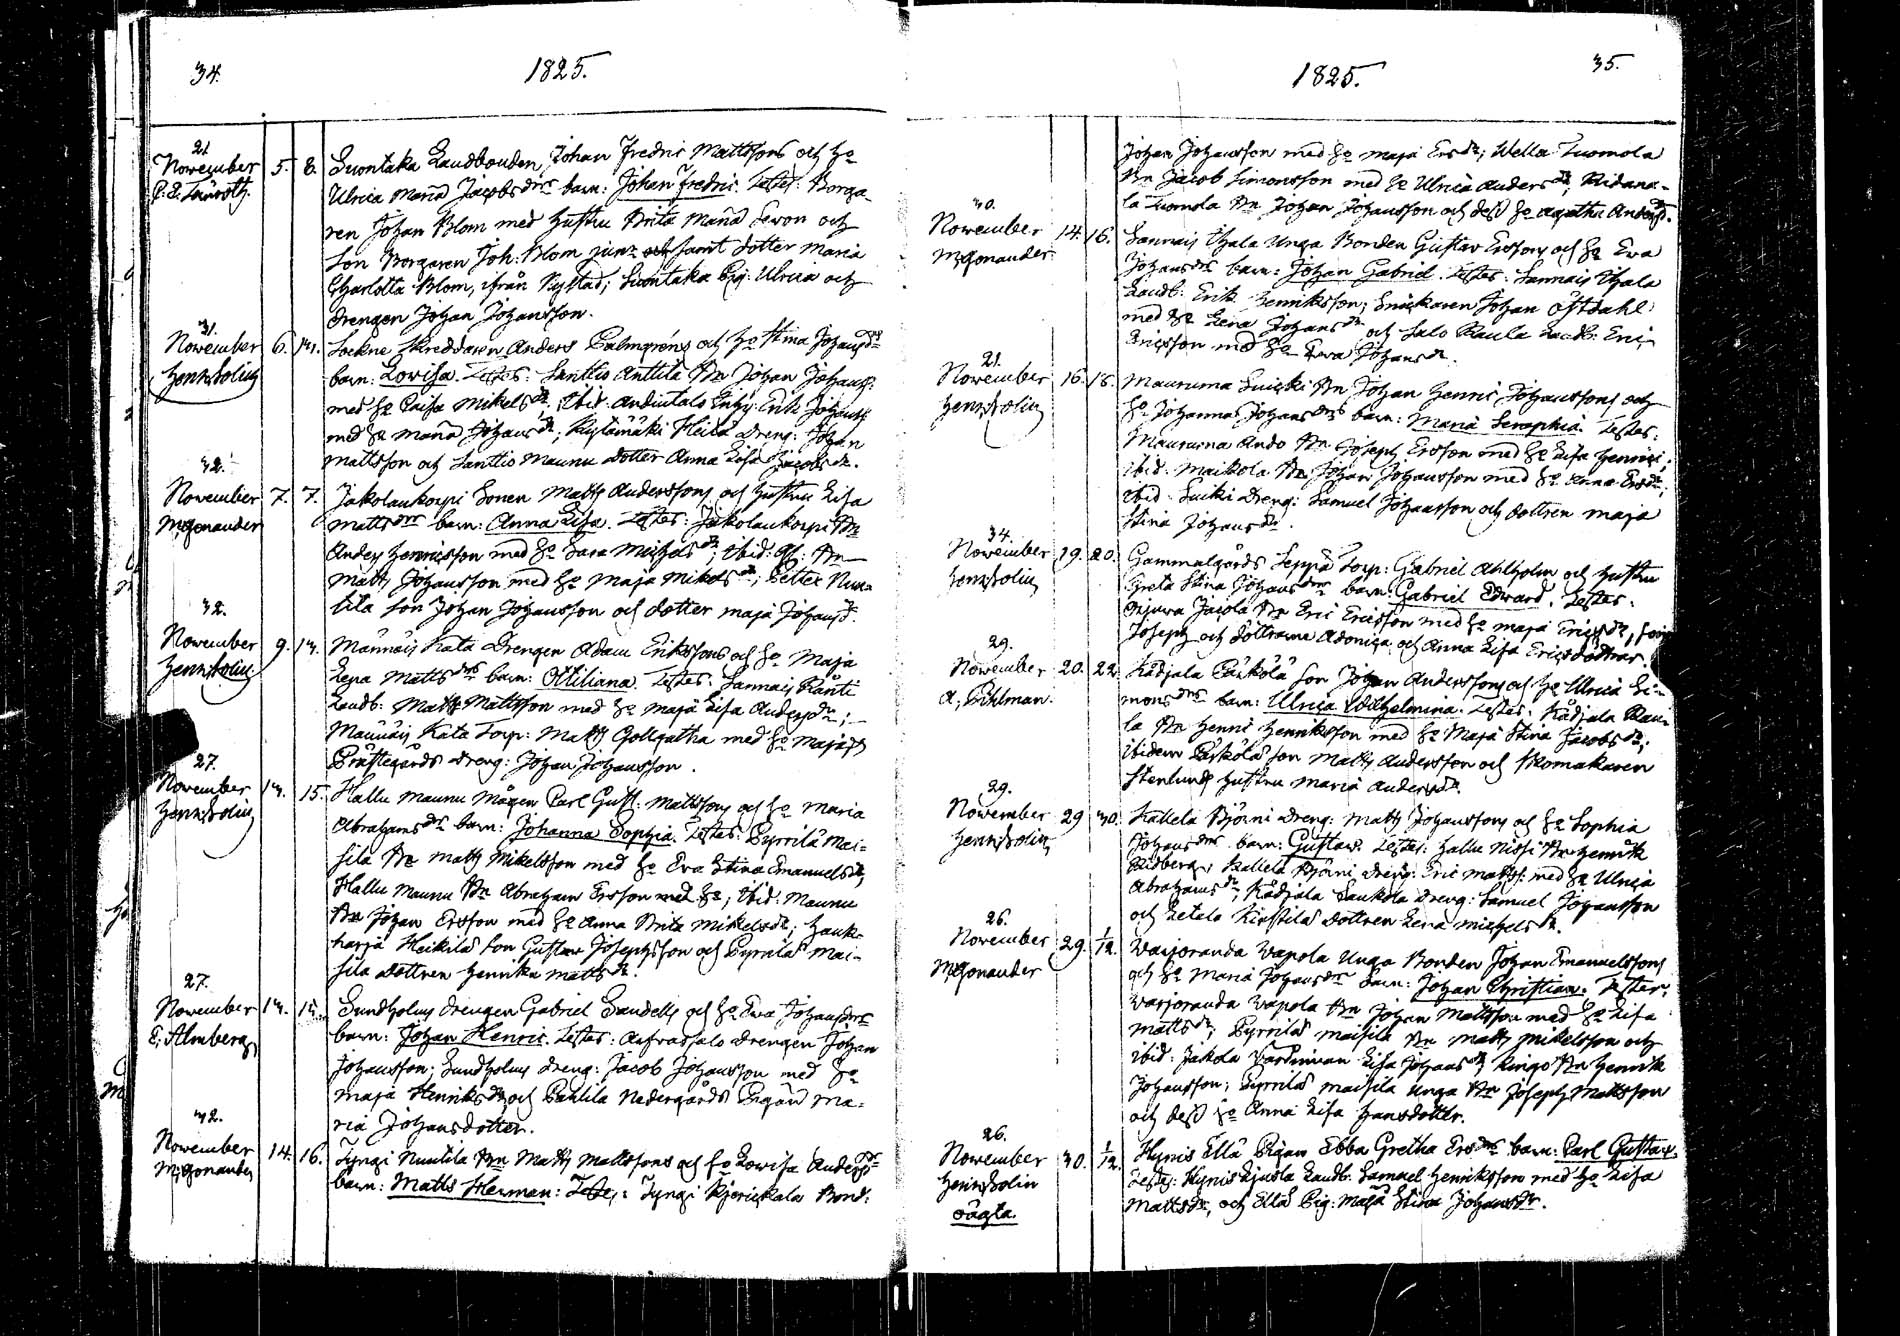 34.
1825.
21
November 5. 8. Suontaka Landbonden, Johan Fredric Mattssons och Ho
Ulrica Maria Jacobsdrs barn: Johan Fredric. Testes: Borga-
ren Johan Blom med hustru Brita Maria Levon och
Son Borgaren Joh: Blom junr samt dotter Maria
Charlotta Blom, ifrån Nystad; Suontaka Pig: Ulrica och
drengen Johan Johansson.
31.
November 6. 13. Skreddaren Anders Palmgréns och Ho Stina Johansdrs
Henr: Bolin barn: Lovisa. Testes: Santtio Anttila Bn Johan Johanss:
med Ho Caisa Mikelsdr, Ibid: Erik Johanss
med Ho Maria Johansdr; Heilä Dreng: Johan
Mattsson och Santtio Maunu dotter Anna Lisa Jacobsdr.
32.
November 7. 7. Jakolankorpi Sonen Matts Anderssons och hustru Lisa
M; Gonander Mattsdrs barn: Anna Lisa. Testes: Jakolankorpi Bn
Anders Henricsson med Ho Sara Michelsdr; Ibid: Bn
Matts Johansson med Ho Maja Mikelsdr; Petter
son Johan Johansson och dotter Maja Johansdr.
32.
November 9. 13. Männäis Kata Drengen Adam Erikssons och Ho Maja
Henr: Bolin Lena Mattsdrs barn: Ottiliana. Testes: Sannais Känti
Landb: Matts Mattsson med Ho Maja Lisa Andersdr;
Männäis Kata Torp: Matts Gollgatha med Ho Maja och
Prästegårds Dreng: Johan Johansson.
27.
November 13. 15. Hallu Maunu Mågen Carl Gust: Mattssons och Ho Maria
Henr: Bolin Abrahamsdrs barn: Johanna Sophia. Testes: Pyrrilä Mai-
sila Bn Matts Mikelsson med Ho Eva Stina Emanuelsdr,
Hallu Maunu Bn Abraham Ersson med Ho; Ibid: Maunu
Bn Johan Ersson med Ho Anna Brita Mikelsdr; Hauki-
harja Heikilä son Gustav Josephsson och Pyrrilä Mai-
sila dottren Henrika Mattsdr.
27.
November 13. 15. Sundholms drengen Gabriel Sandells och Ho Eva Johansdrs
E; Almberg barn: Johan Henric. Testes: drengen Johan
Johansson; Sundholms dreng: Jacob Johansson med Ho
Maja Henriksdr och Pahlila Nedergårds Pigan Ma-
ria Johansdotter.
32.
November 14. 16. Tyngi Nuutila Bn Matts Mattssons och Ho Lovisa Andersdrs
M; Gonander barn: Matts Herman: Testes: Tyngi Bond:
1825.
35.
Johan Johansson med Ho Maja Ersdr; Wella Tuomola
Bn Jacob Simonsson med Ho Ulrica Andersdr,
la Tuomola Bn Johan Johansson och dess Ho Agatha Andersdr.
30.
November 14. 16. Sannais Ylhala Unga Bonden Gustav Erssons och Ho Eva
M; Gonander Johansdrs barn: Johan Gabriel. Testes: Sannais Ylhala
Landb: Erik Henriksson; Snickaren Johan Östdahl
med Ho Lena Johansdr och Salo Kaula Landb: Eric
Ericsson med Ho Eva Johansdr.
21.
November 16. 18. Mauruma Suicki Bn Johan Henric Johanssons och
Henr: Bolin Ho Johanna Johansdrs barn: Maria Seraphia. Testes:
Mauruma Bn Joseph Ersson med Ho Lisa Henrici;
ibid: Maikola Bn Johan Johansson med Ho Anna Ersdr;
ibid: Suiki dreng: Samuel Johansson och dottren Maja
Stina Johansdr.
34.
November 19. 20. Gammalgårds Seppä Torp: Gabriel Ahlholm och hustru
Henr: Bolin Greta Stina Johansdrs barn: Gabriel Edvard. Testes:
Jacola Bn Eric Ericsson med Ho Maja Ericsdr,
Joseph och döttrarna Adonica och Anna Lisa Ericsdöttrar.
29.
November 20. 22. Kådjala Päskölä son Johan Anderssons och Ho Ulrica Si-
A; Pihlman. monsdrs barn: Ulrica Wilhelmina. Testes: Kådjala
la Bn Henric Henriksson med Ho Maja Stina Jacobsdr;
ibidem Päskölä son Matts Andersson och Skomakaren
Stenlunds hustru Maria Andersdr.
29.
November 29 30. Kallela Björni dreng: Matts Johanssons och Ho Sophia
Henr: Bolin Johansdrs barn: Gustav. Testes: Hallu Nissi Bn Henrik
Widberg; Kallela Björni dreng: Eric Matts: med Ho Ulrica
Abrahamsdr, Kådjala Dreng: Samuel Johansson
och dottren Lena Michelsdr.
26.
November 29. 1/12. Varjoranda Vapola Unga Bonden Johan Emanuelssons
M; Gonander och Ho Maria Johansdrs barn: Johan Christian. Testes:
Varjoranda Vapola Bn Johan Mattsson med Ho Lisa
Mattsdr; Pyrrilä Maisila Bn Matts Mikelsson och
ibid: Jakola Lisa Johansdr, Ringo Bn Henrik
Johansson; Pyrrilä Maisila Unga Bn Joseph Mattsson
och dess Ho Anna Lisa Hansdotter.
26.
November 30. 1/12. Hynis Ellä Pigan Ebba Gretha Ersdrs barn: Carl Gustav.
Henr: Bolin Testes: Hynis Landb: Samuel Henriksson med Ho Lisa
oägta. Mattsdr, och Ellä Pig: Maja Stina Johansdr.